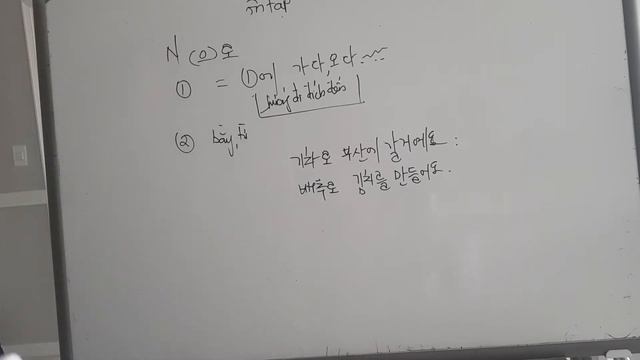 ôn tập
N (으)로
① = ①에 가다, 오다.
hướng đi đích đến
② bằng, từ
기차로 부산에 갈거에요.
배추로 김치를 만들어요.